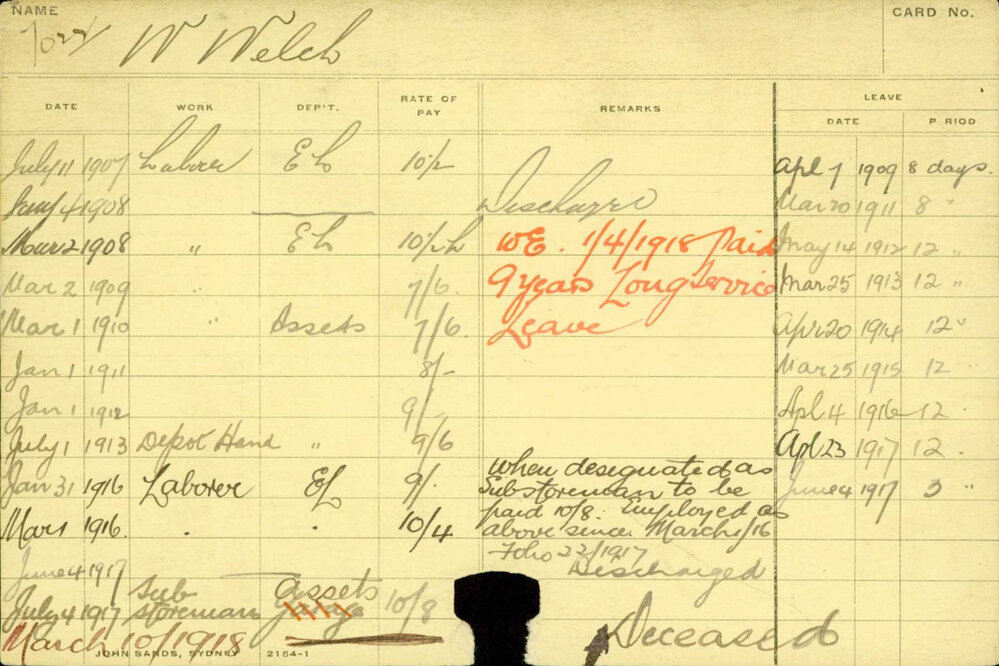 NAME
CARD No.
W Welch
LEAVE
DATE WORK DEP'T. RATE OF PAY REMARKS DATE P RIOD
July 11 1907 Laborer EL Apl 7 1909 8 days.
1908 Discharge Mar 20 1911 8 "
Mar 2 1908 " EL WE. 1/4/1918 Paid May 14 1912 12 "
Mar 2 1909 " 7/6 9 years Long Service Mar 25 1913 12 "
Mar 1 1910 " Assets 7/6 Leave Apr 20 1914 12 "
Jan 1 1911 8/- Mar 25 1915 12
Jan 1 1912 9/- Apl 4 1916 12
July 1 1913 Depot Hand " 9/6 Apl 23 1917 12
Jan 31 1916 Laborer EL 9/- When designated as June 4 1917 3 "
Substoreman to be
Mar 1 1916. . . 10/4 paid 10/8. Employed as
above since March 1/16
Folio 22/1917
June 4 1917 Discharged
July 4 1917 Sub storeman Assets 10/8
March 10/1918 Deceased
JOHN SANDS, SYDNEY 2154-1